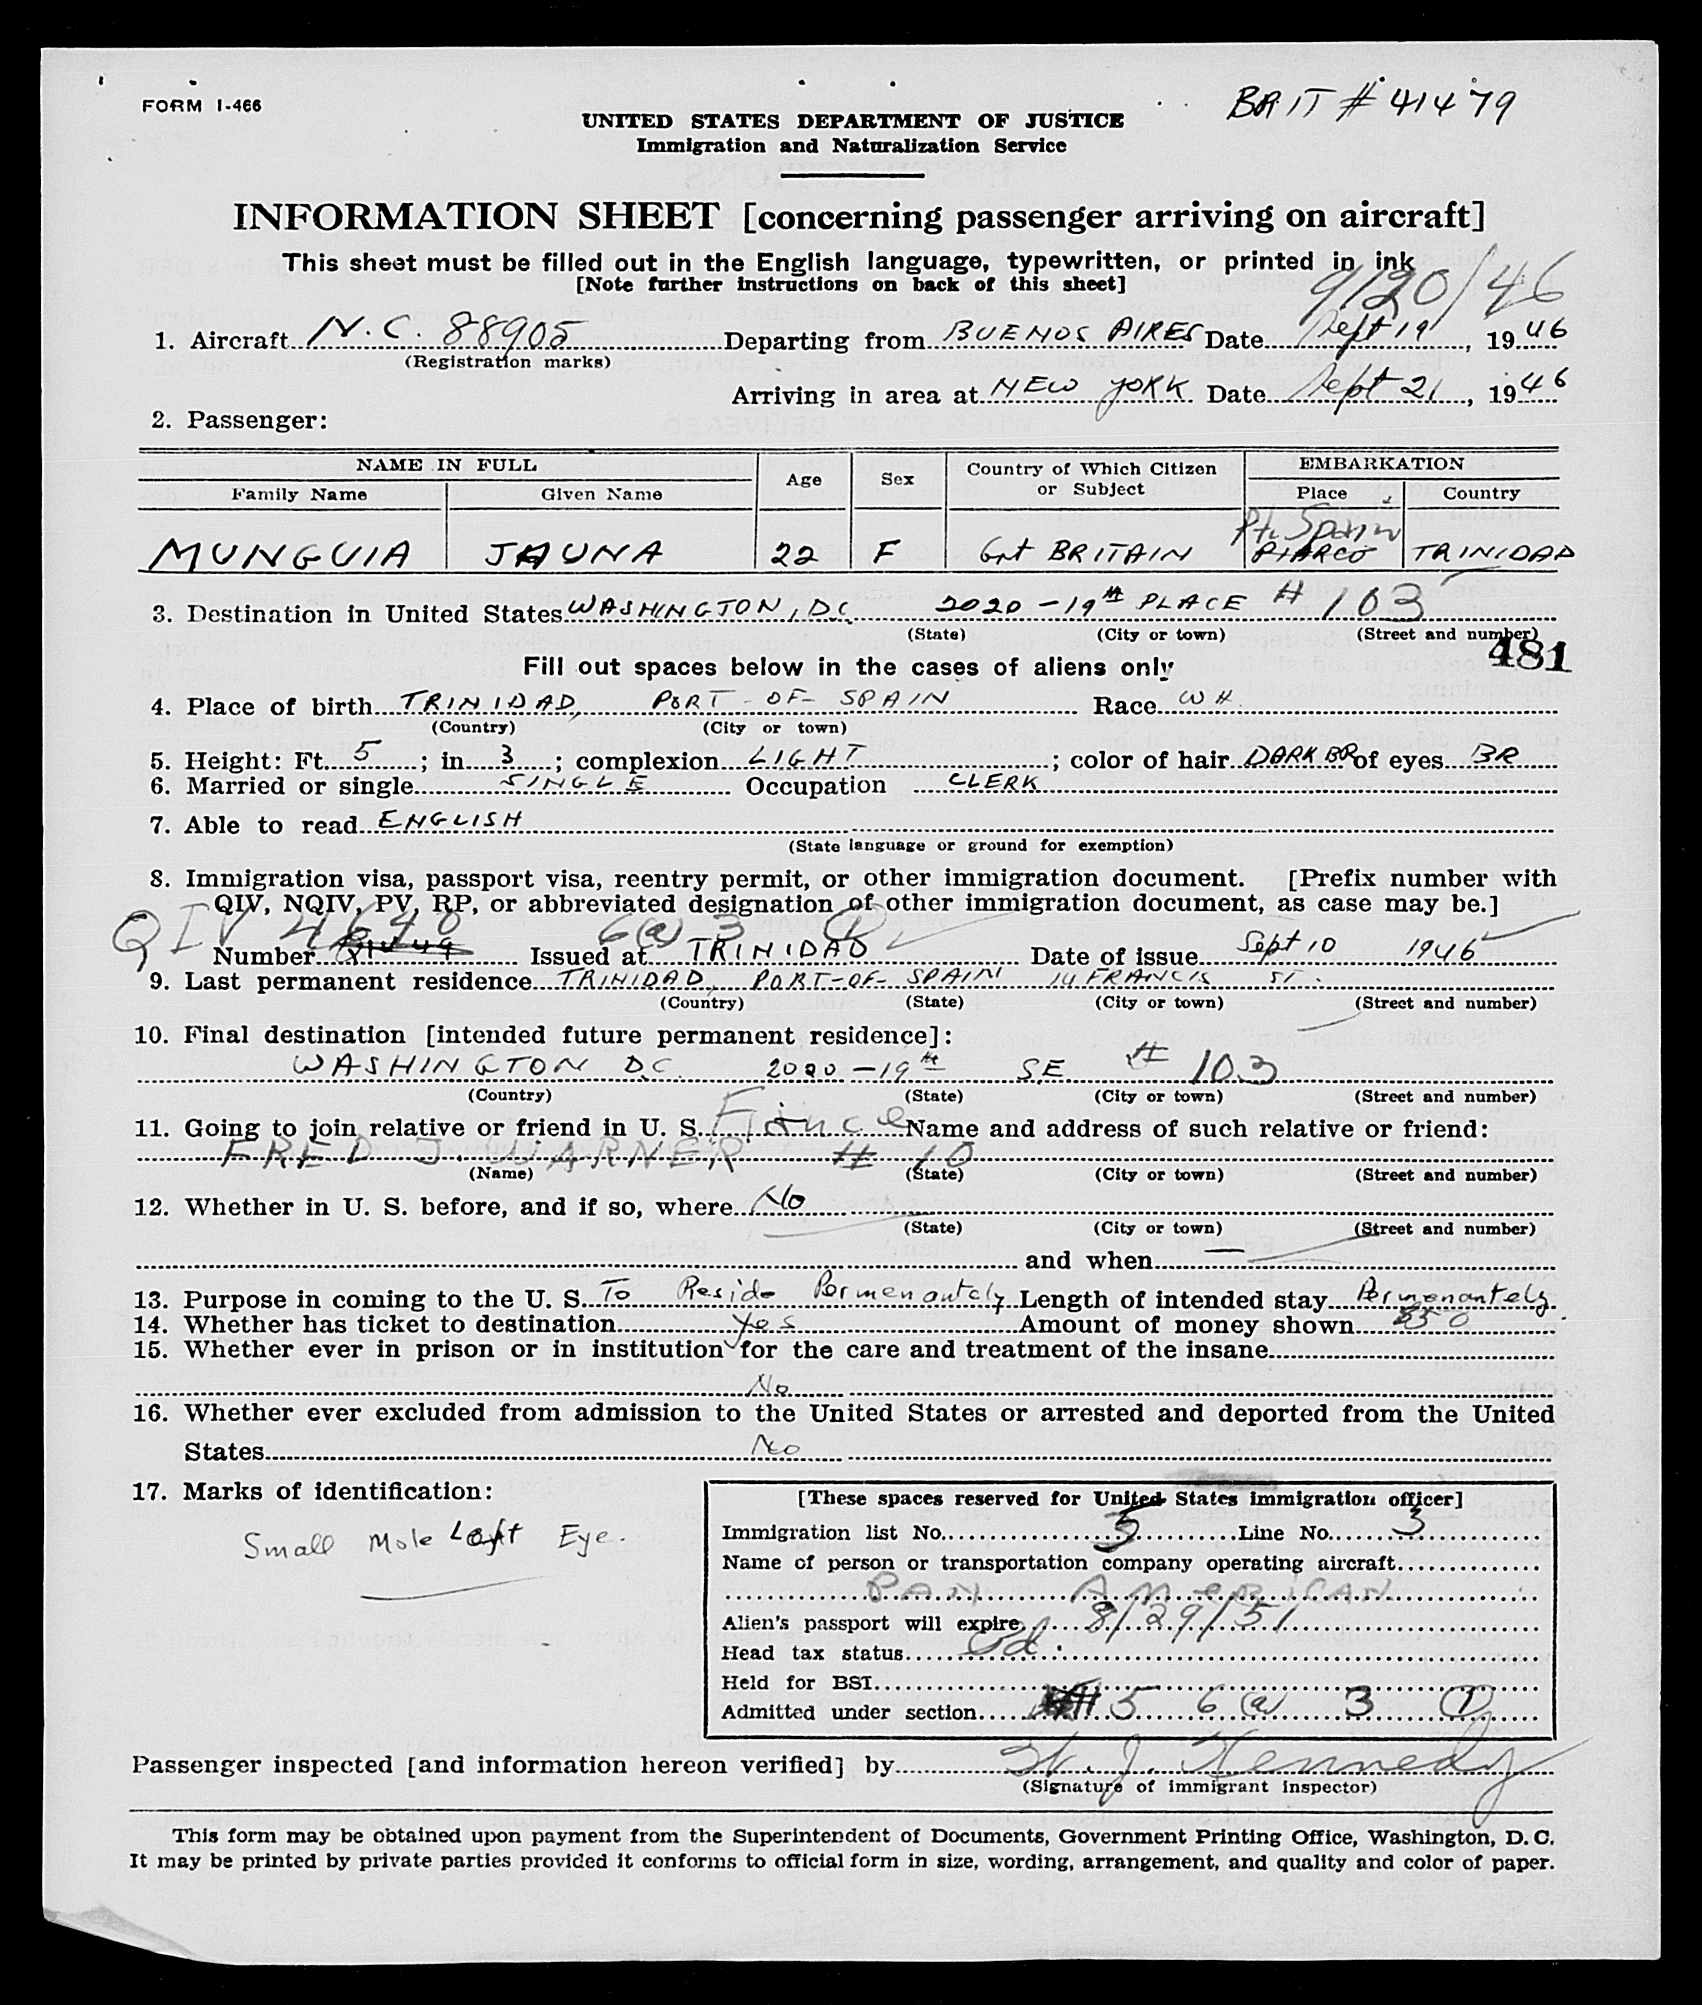 FORM I-466
BRIT # 41479
UNITED STATES DEPARTMENT OF JUSTICE
Immigration and Naturalization Service
INFORMATION SHEET [concerning passenger arriving on aircraft]
This sheet must be filled out in the English language, typewritten, or printed in ink
[Note further instructions on back of this sheet]
9/20/46
1. Aircraft N.C. 88905 Departing from BUENOS AIRES Date Sept 19, 1946
(Registration marks)
Arriving in area at NEW YORK Date Sept 21, 1946
2. Passenger:
NAME IN FULL Age Sex Country of Which Citizen or Subject EMBARKATION
Family Name Given Name Place Country
Pt. Spain
MUNGUIA JAUNA 22 F Gnt BRITAIN PIARCO TRINIDAD
3. Destination in United States WASHINGTON, D.C. 2020 - 19th PLACE # 103
(State) (City or town) (Street and number)
481
Fill out spaces below in the cases of aliens only
4. Place of birth TRINIDAD, PORT-OF-SPAIN Race WH.
(Country) (City or town)
5. Height: Ft. 5; in. 3; complexion LIGHT; color of hair DARK BR of eyes BR
6. Married or single SINGLE Occupation CLERK
7. Able to read ENGLISH
(State language or ground for exemption)
8. Immigration visa, passport visa, reentry permit, or other immigration document. [Prefix number with
QIV, NQIV, PV, RP, or abbreviated designation of other immigration document, as case may be.]
QIV 4640 6(a) 3 (1)
Number Issued at TRINIDAD Date of issue Sept 10 1946
9. Last permanent residence TRINIDAD, PORT-OF-SPAIN 14 FRANCIS ST.
(Country) (State) (City or town) (Street and number)
10. Final destination [intended future permanent residence]:
WASHINGTON D.C. 2020 - 19th SE # 103
(Country) (State) (City or town) (Street and number)
11. Going to join relative or friend in U. S. Fiance Name and address of such relative or friend:
FRED J. WARNER # 10
(Name) (State) (City or town) (Street and number)
12. Whether in U. S. before, and if so, where No
(State) (City or town) (Street and number)
and when —
13. Purpose in coming to the U. S. To Reside Permenantely Length of intended stay Permenantely.
14. Whether has ticket to destination Yes Amount of money shown
15. Whether ever in prison or in institution for the care and treatment of the insane
No
16. Whether ever excluded from admission to the United States or arrested and deported from the United
States No
17. Marks of identification:
Small Mole Left Eye.
[These spaces reserved for United States immigration officer]
Immigration list No. 5 Line No. 3
Name of person or transportation company operating aircraft
PAN AMERICAN
Alien's passport will expire 8/29/51
Head tax status Pd.
Held for BSI
Admitted under section 5 6(a) 3 (1)
Passenger inspected [and information hereon verified] by W. J. Kennedy
(Signature of immigrant inspector)
This form may be obtained upon payment from the Superintendent of Documents, Government Printing Office, Washington, D. C.
It may be printed by private parties provided it conforms to official form in size, wording, arrangement, and quality and color of paper.